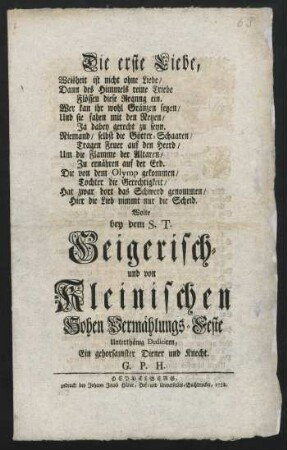 Die erste Liebe,
Weisheit ist nicht ohne Liebe/
Dann des Himmels reine Triebe
Flössen diese Regung ein.
Wer kan ihr wohl Gränzen setzen/
Und sie sahen mit den Netzen/
Ja dabey gerecht zu seyn.
Niemand/ selbst die Götter-Schaaren/
Tragen Feuer auf den Heerd/
Um die Flamme der Altaren/
Zu ernähren auf der Erd.
Die von dem Olymp gekommen/
Tochter die Gerechtigkeit/
Hat zwar dort das Schwerd genommen/
Hier die Lieb nimmt nur die Scheid.
Wolte
bey dem S. T.
Geigerisch-
und von
Kleinischen
Hohen Vermählungs-Feste
Unterthänig Dediciren,
Ein gehorsamster Diener und Knecht.
G. P. H.
HEYDELBERG,
gedruckt bey Johann Jacob Häner, Hof- und Universitäts-Buchdrucker,